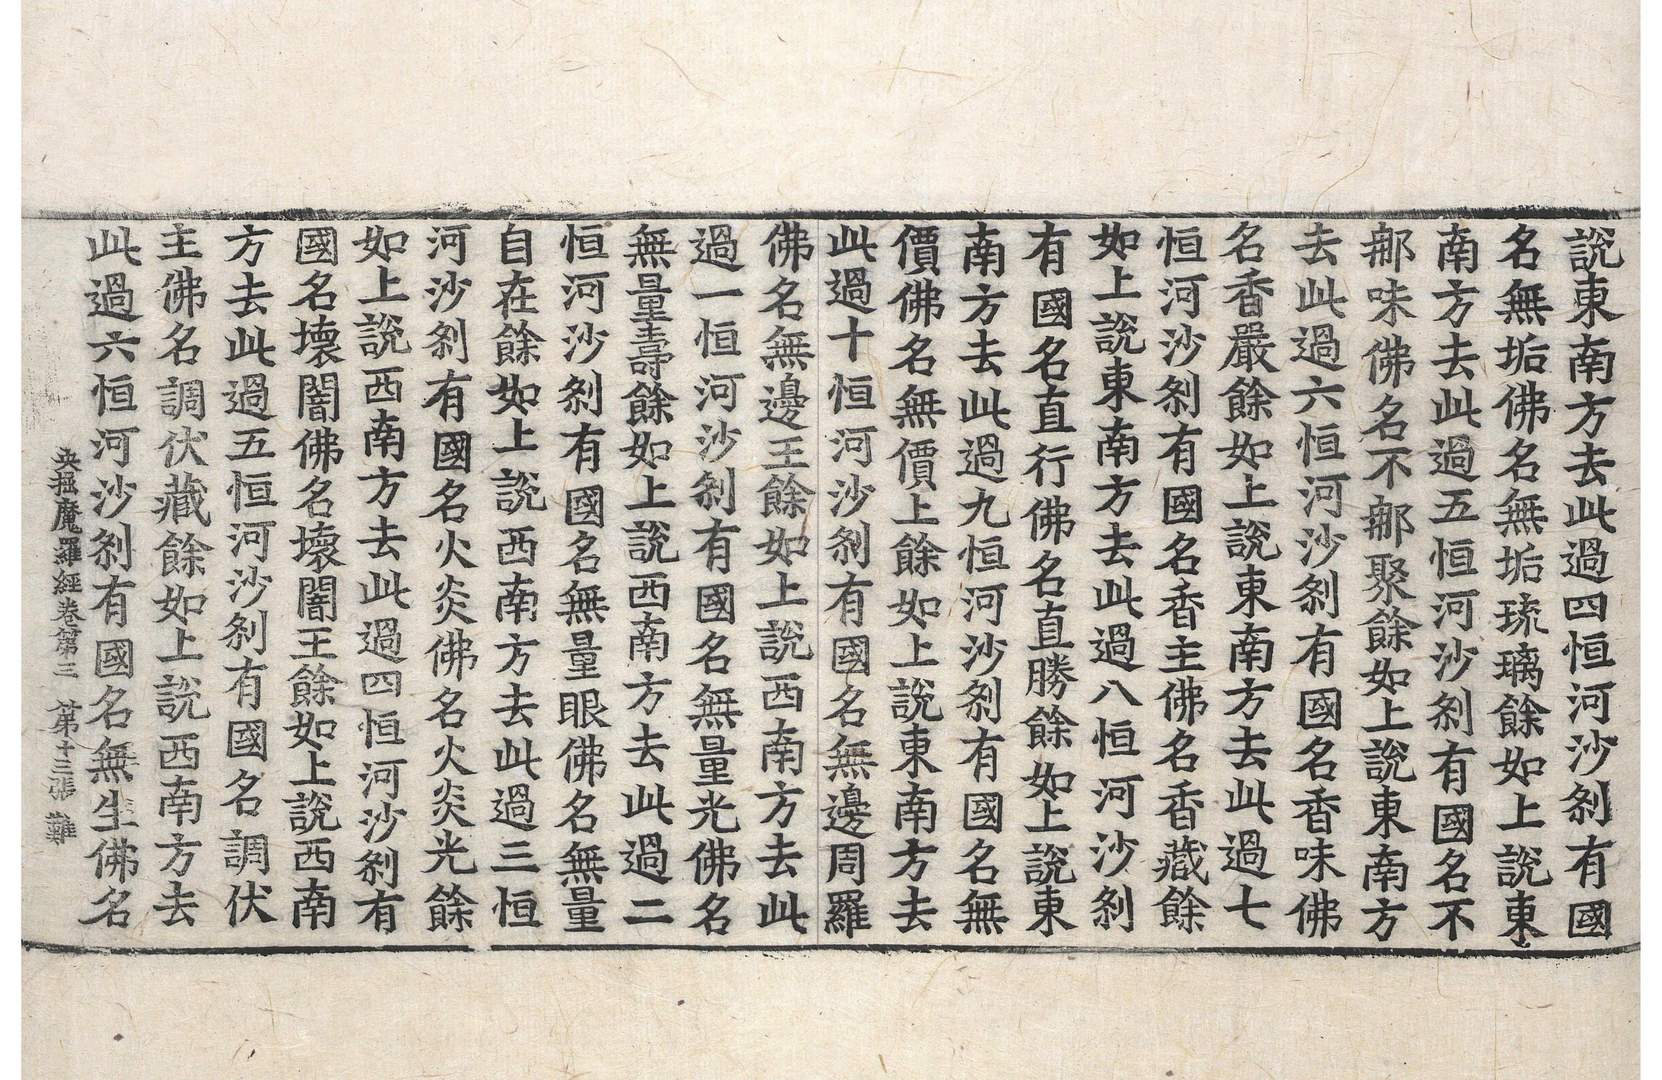 說東南方去此過四恒河沙剎有國
名無垢佛名無垢琉璃餘如上說東
南方去此過五恒河沙剎有國名不
郍味佛名不郍聚餘如上說東南方
去此過六恒河沙剎有國名香味佛
名香嚴餘如上說東南方去此過七
恒河沙剎有國名香主佛名香藏餘
如上說東南方去此過八恒河沙剎
有國名直行佛名直勝餘如上說東
南方去此過九恒河沙剎有國名無
價佛名無價上餘如上說東南方去
此過十恒河沙剎有國名無邊周羅
佛名無邊王餘如上說西南方去此
過一恒河沙剎有國名無量光佛名
無量壽餘如上說西南方去此過二
恒河沙剎有國名無量眼佛名無量
自在餘如上說西南方去此過三恒
河沙剎有國名火炎佛名火炎光餘
如上說西南方去此過四恒河沙剎有
國名壞闇佛名壞闇王餘如上說西南
方去此過五恒河沙剎有國名調伏
主佛名調伏藏餘如上說西南方去
此過六恒河沙剎有國名無生佛名
央掘魔羅經卷第三 第十三張 難